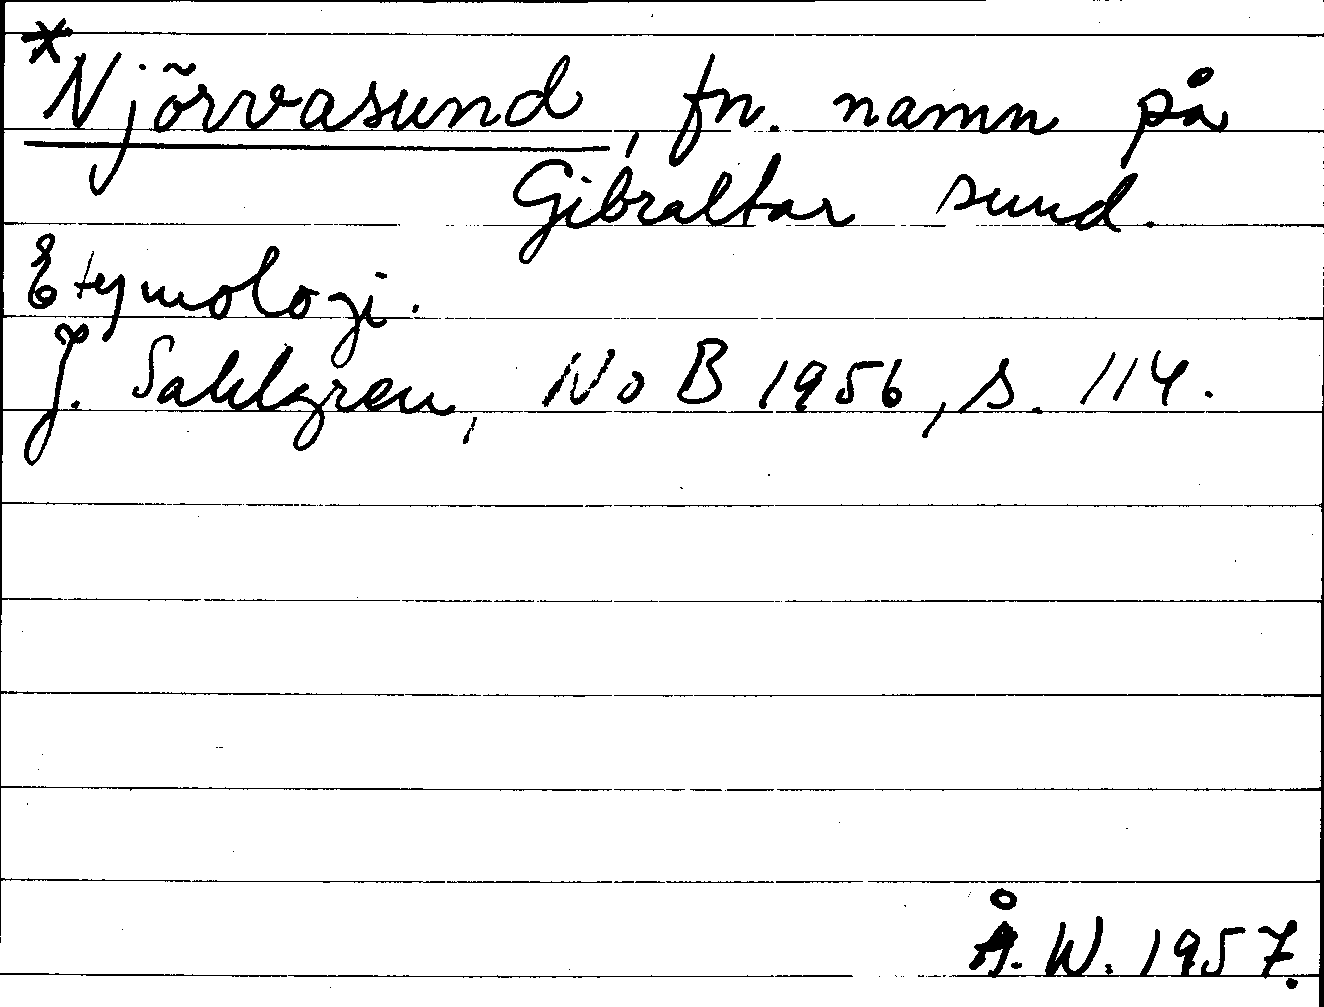 *Njörvasund, fn. namn på
Gibraltar sund.
Etymologi.
J. Sahlgren, NoB 1956, s. 114.
Å. W. 1957.